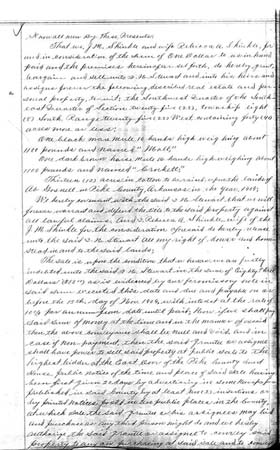 Know all men By these Presents:
That we, J. M. Shinkle and wife Rebecca A. Shinkle, for
and in consideration of the sum of One Dollar to us in hand
paid and the premises hereinafter set forth, do hereby grant,
bargain and sell unto S. H. Stewart and unto his heirs and
assigns forever the following described real estate and per
sonal property, to wit: the Southwest Quarter of the South
east Quarter of Section twenty five (25) township eight
(8) South Range twenty five (25) West containing forty (40)
acres more or less:
One black mare mule 14 hands high weighing about
1100 pounds and Named
One dark brown horse mule 14 hands high weighing about
1100 pounds and Named
Thirteen (13) acres in cotton to be raised upon the lands of
in Pike County, Arkansas in the year, 1908;
We hereby covenant with the said S. H. Stewart that we will
forever warrant and defend the title to the said property against
all lawful claims, and I Rebecca A. Shinkle wife of the
J. M. Shinkle for the consideration aforesaid do hereby release
unto the said S. H. Stewart all my right of dower and home
stead in and to the said lands;
The sale is upon the condition, that whereas we are justly
indebted unto the said S. H. Stewart in the sum of Eighty three
Dollars as is evidenced by our promissory note in
said sum executed this date and due and payable on or
before the 15th day of Nov 1908, with interest at the rate of
10% per annum from date until paid; Now if we shall pay
said sum of money at the time and in the manner aforesaid
then the above conveyance shall be null and void, and in
case of non-payment, then the said grantee or assignee
shall have power to sell said property at public sale to the
highest bidder, at the East door of the Pike County Court
House public notice of the time and place of said sale having
been first given 20 days by advertising in some newspaper
published in said County by at least insertions, or
by printed notices posted in five public places in the County,
at which sale the said grantee or his assignees may bid
and purchase as any third person might do and we hereby
authorize the said grantee or assignee to convey said
property to any one purchasing at said sale and to convey